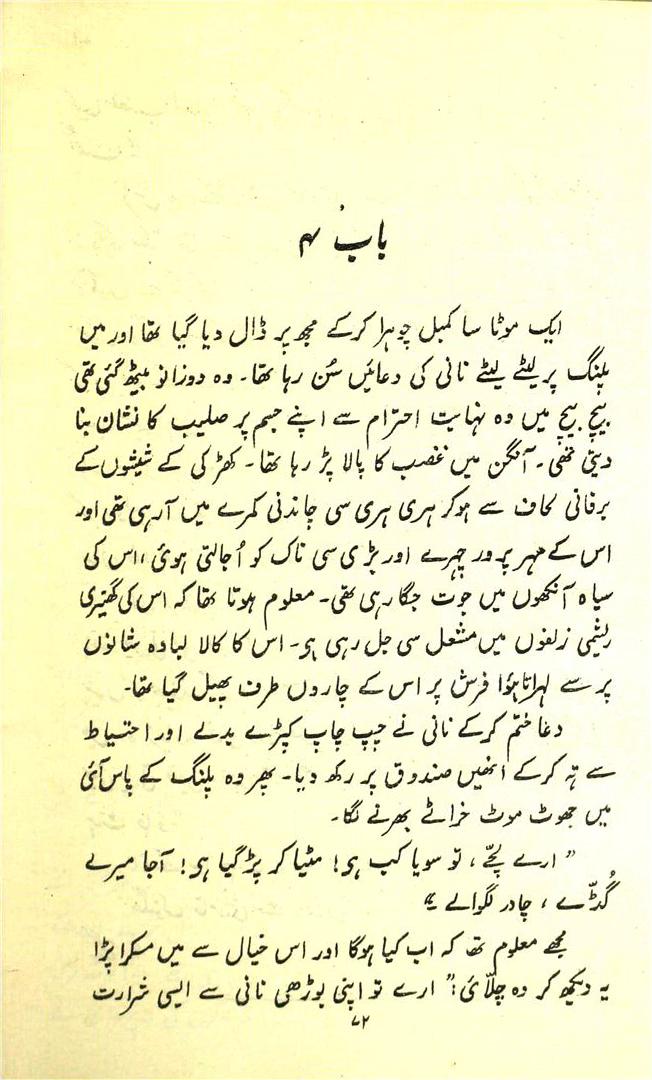 باب ۴
ایک موٹا سا کمبل چوہرا کرکے مجھ پر ڈال دیا گیا تھا اور میں
پلنگ پر لیٹے لیٹے نانی کی دعائیں سُن رہا تھا۔ وہ دوزانو بیٹھ گئی تھی
بیچ بیچ میں وہ نہایت احترام سے اپنے جسم پر صلیب کا نشان بنا
دیتی تھی۔ آنگن میں غضب کا پالا پڑ رہا تھا۔ کھڑکی کے شیشوں کے
برفانی لحاف سے ہوکر ہری ہری سی چاندنی کمرے میں آرہی تھی اور
اس کے مہر پرور چہرے اور بڑی سی ناک کو اُجالتی ہوئی، اس کی
سیاہ آنکھوں میں جوت جگا رہی تھی۔ معلوم ہوتا تھا کہ اس کی گھنیری
ریشمی زلفوں میں مشعل سی جل رہی ہی۔ اس کا کالا لبادہ شانوں
پر سے لہراتا ہؤا فرش پر اس کے چاروں طرف پھیل گیا تھا۔
دعا ختم کرکے نانی نے چپ چاپ کپڑے بدلے اور احتیاط
سے تہ کرکے انھیں صندوق پر رکھ دیا۔ پھر وہ پلنگ کے پاس آئی
میں جھوٹ موٹ خراٹے بھرنے لگا۔
" ارے لچّے ، تو سویا کب ہی! مٹیا کر پڑ گیا ہی! آجا میرے
گُڈّے ، چادر لگوالے "
مجھے معلوم تھا کہ اب کیا ہوگا اور اس خیال سے میں مسکرا پڑا
یہ دیکھ کر وہ چلّائی:" ارے تو اپنی بوڑھی نانی سے ایسی شرارت
۷۲